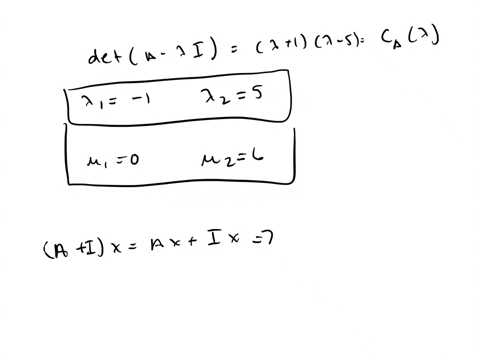 det(A - λI) = (λ+1)(λ-5) = C_A(λ)
λ₁ = -1 λ₂ = 5
μ₁ = 0 μ₂ = 6
(A + I)x = Ax + Ix =>